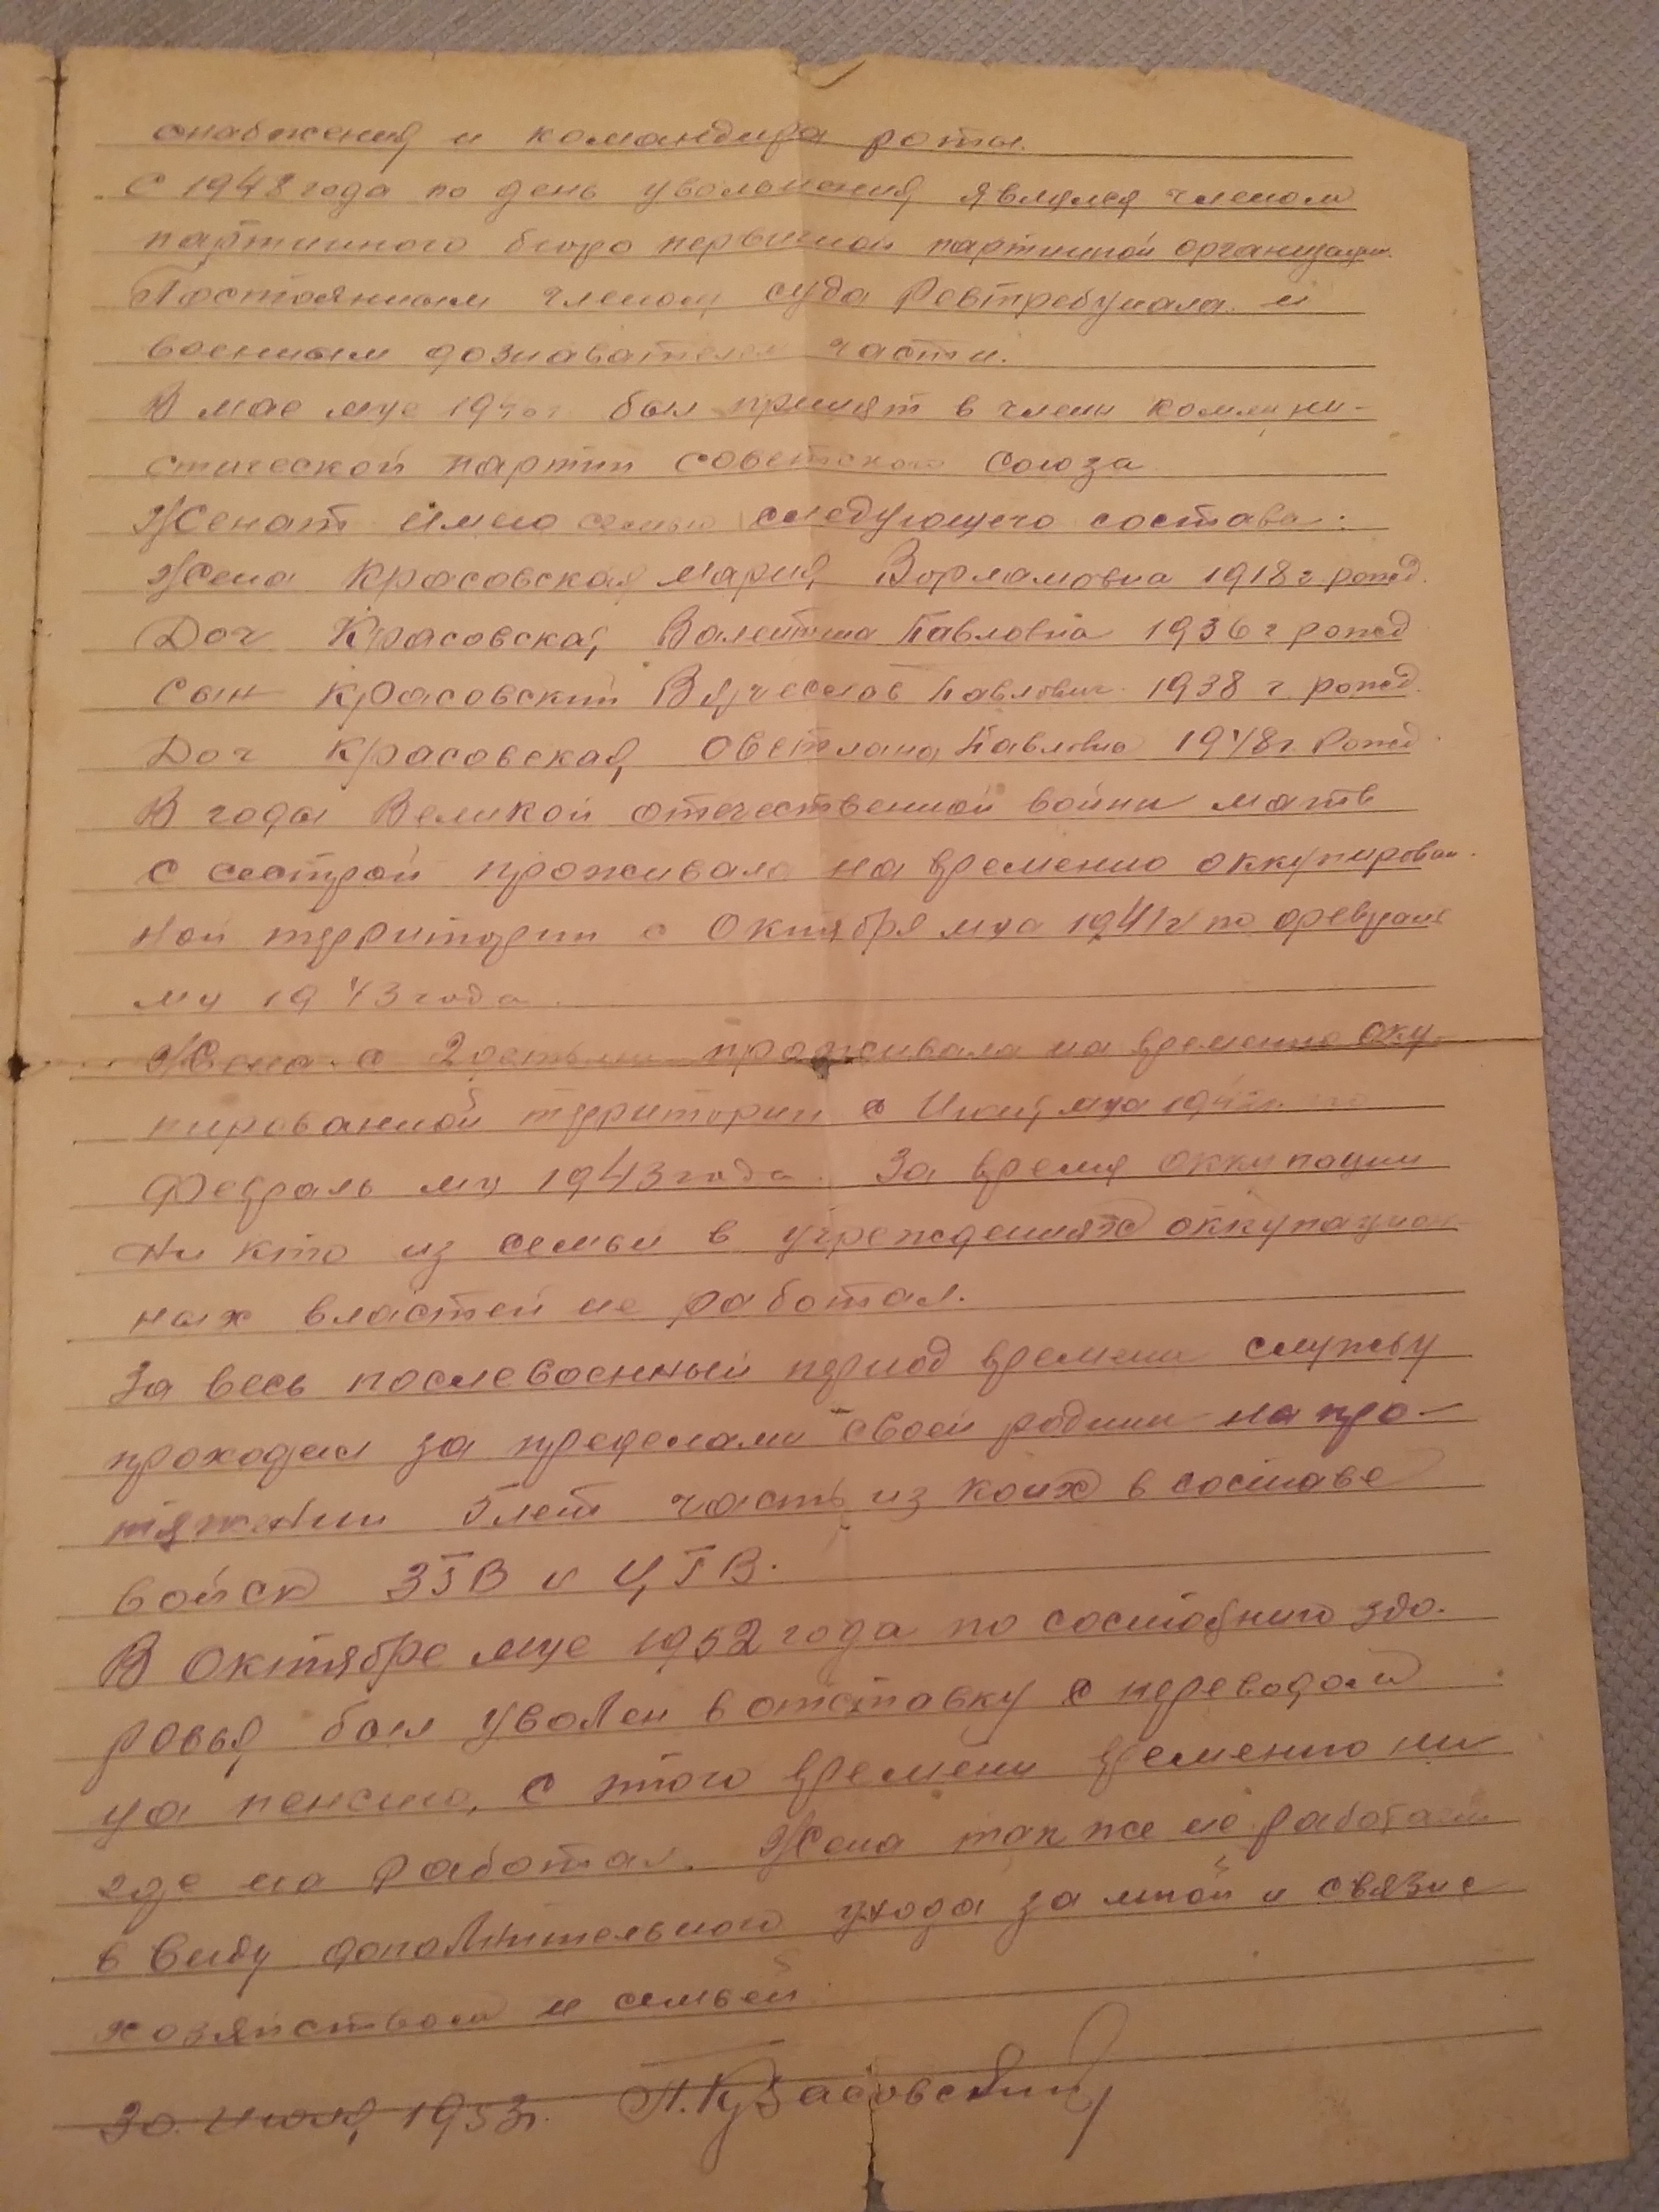 снабжения и командира роты.
С 1948 года по день увольнения являлся членом
партийного бюро первичной партийной организации.
Постоянным членом суда Ревтребунала и
военным дознавателем части.
В мае м-це был принят в члены коммуни-
стической партии советского союза
Женат имею семью следующего состава:
Жена Красовская Мария Ворламовна 1918 г рожд.
Доч Красовская Валентина Павловна 1936 г рожд
Сын Красовский Вячеслов Павлович 1938 г рожд.
Доч Красовская Светлана Павловна 1948 г. Рожд
В годы Великой отечественной войны мать
с сестрой проживала на временно оккупирован-
ной территории с Октября м-ца 1941 г по февраль
м-ц 1943 года.
Жена с 2 детьми проживала на временно оку-
пированной территории с м-ца
Февраль м-ц 1943 года. За время оккупации
Ни кто из семьи в учреждениях оккупацион
ных властей не работал.
За весь послевоенный период времени службу
проходил за пределами своей родины на про-
тяжении 5 лет часть из коих в составе
войск ЗГВ и ЦГВ.
В Октябре м-це 1952 года по состоянию здо-
ровья был уволен в отставку с переводом
на пенсию, с этого времени временно ни
где не работал. Жена так же не работает
в виду дополнительного ухода за мной и связи с
хозяйством и семьей.
30. Июля 1953 г. П. Красовский